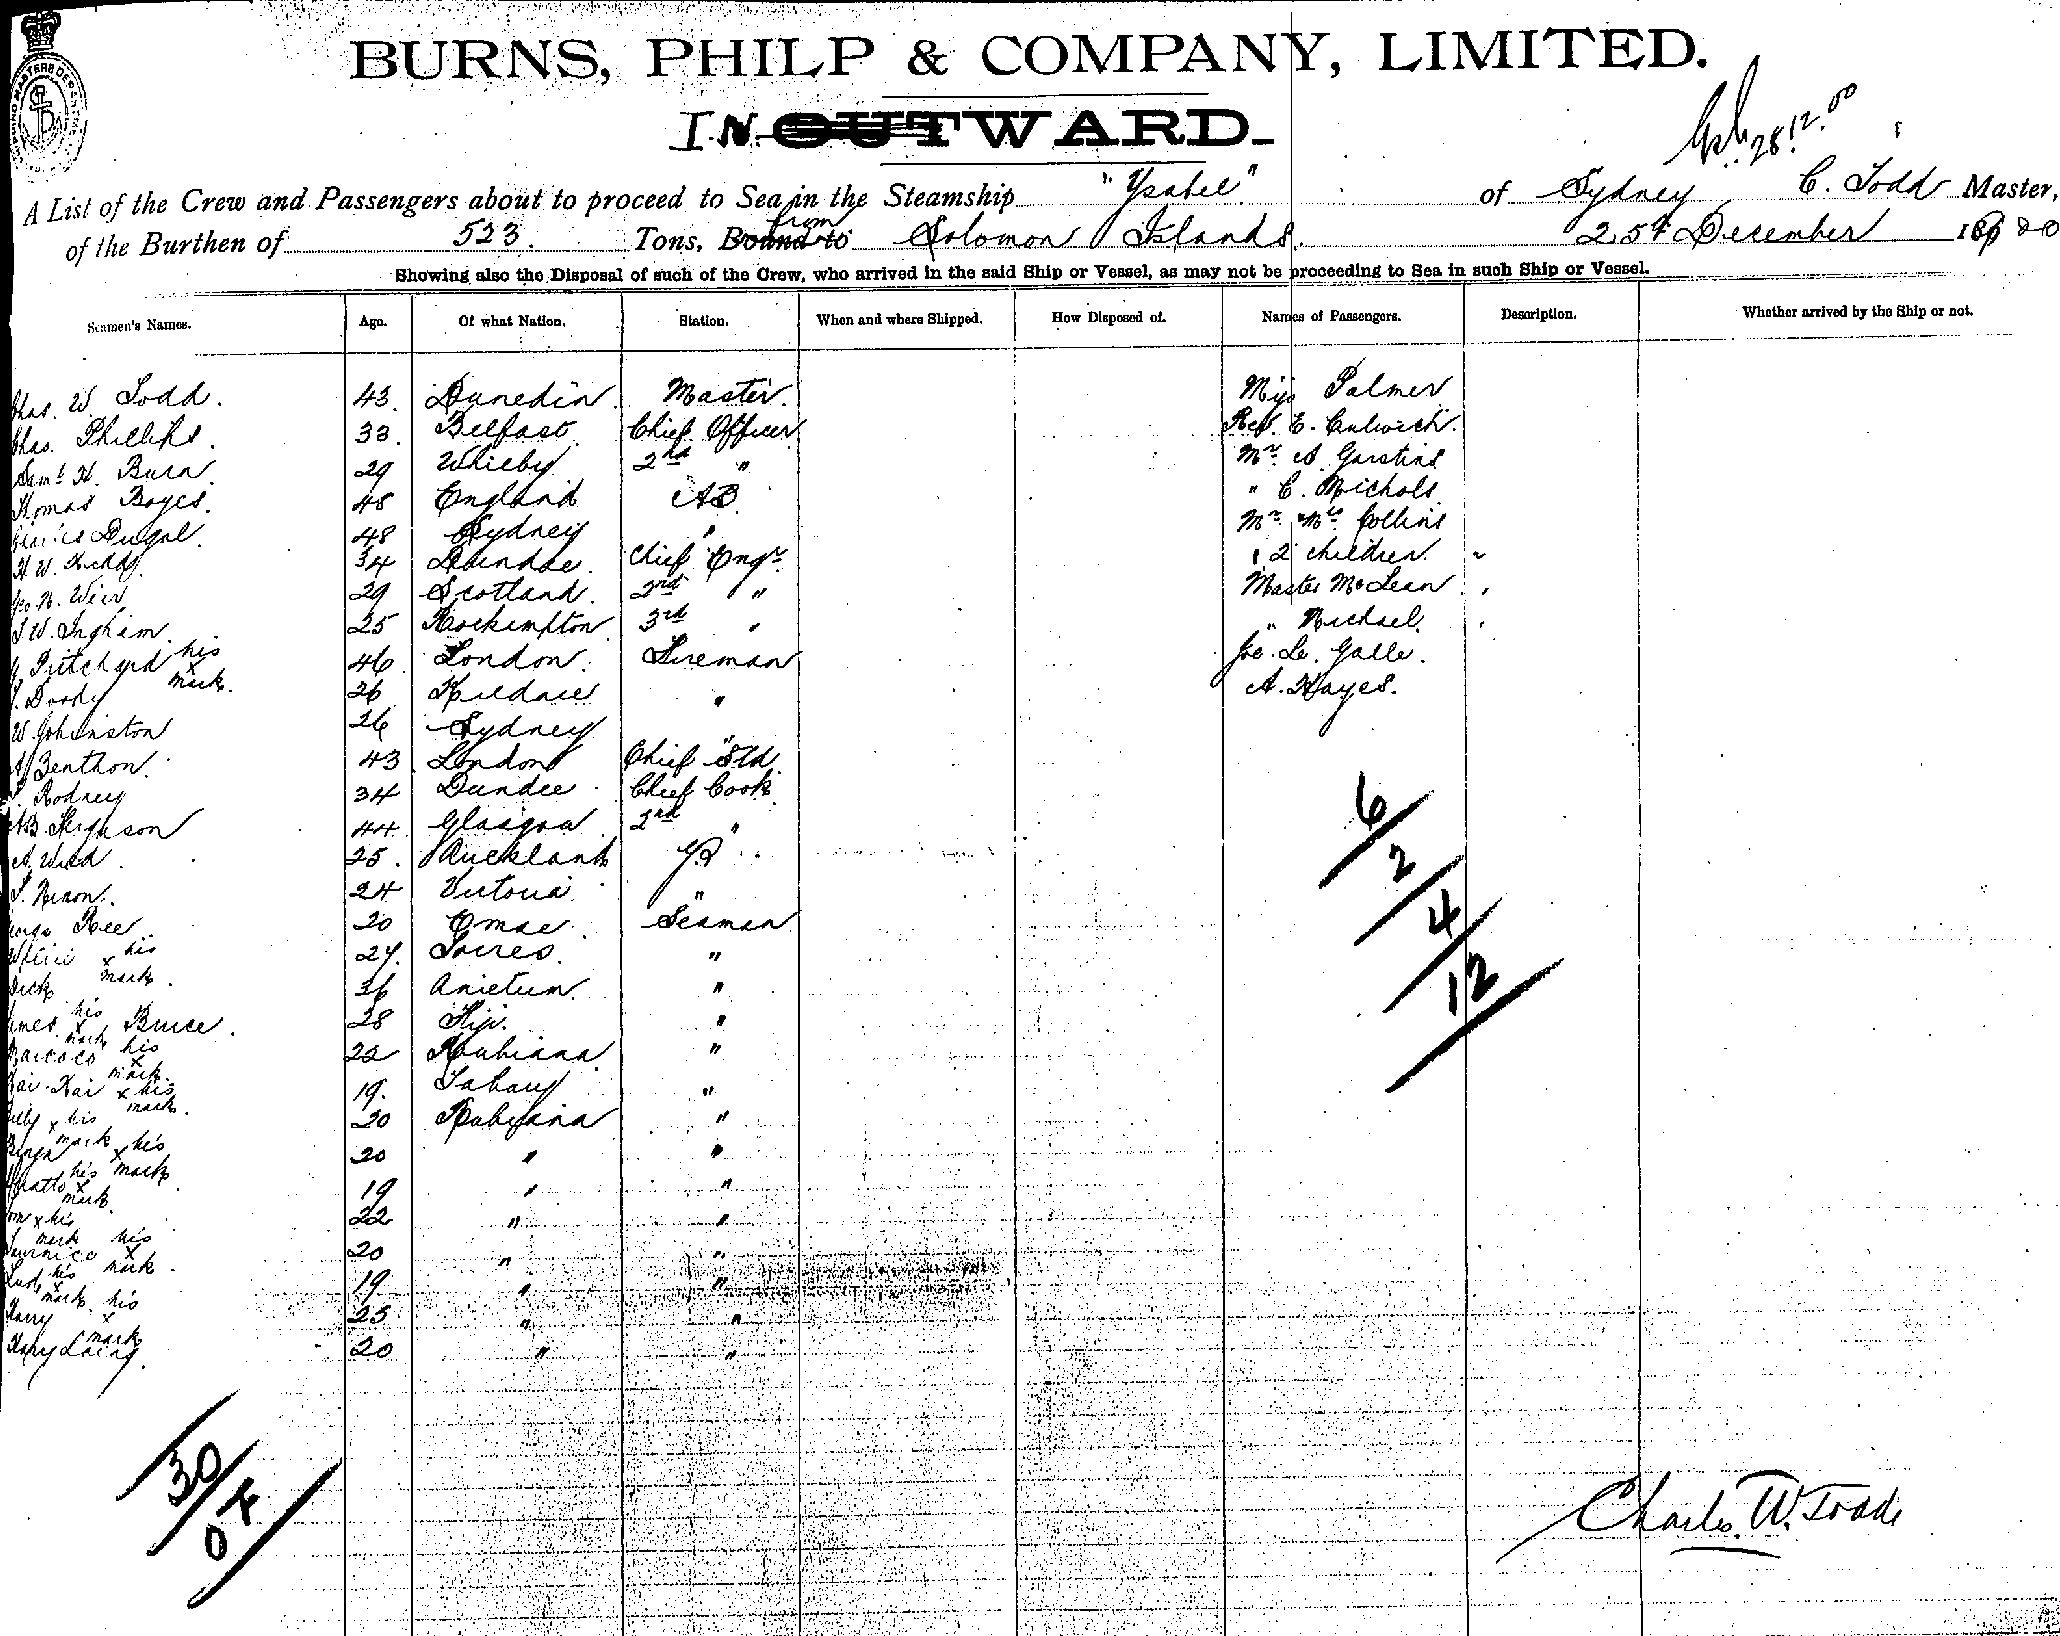 BURNS, PHILP & COMPANY, LIMITED.
IN OUTWARD.
28.12.00
A List of the Crew and Passengers about to proceed to Sea in the Steamship "Ysabel" of Sydney C. Todd Master,
of the Burthen of 523. Tons, Bound to from Solomon Islands. 25th December 1900
Showing also the Disposal of such of the Crew, who arrived in the said Ship or Vessel, as may not be proceeding to Sea in such Ship or Vessel.
Seamen's Names. Age. Of what Nation. Station. When and where Shipped. How Disposed of. Names of Passengers. Description. Whether arrived by the Ship or not.
Chas. W. Todd. 43. Dunedin. Master. Miss Palmer
Chas. Phillips. 33. Belfast Chief Officer Rev. E.
Saml H. Burn 29 Whitby 2nd " Mr. A.
Thomas Boyes. 48 England AB. " C. Nichols
Dugal. 48 Sydney " Mr. Mrs Collins
H. W. 34 Dundee. Chief Engr. 2 children "
Geo. N. Weir 29 Scotland. 2nd " Master McLean "
J W. Ingham. 25 Rockhampton 3rd " " Michael. "
G Pritchard his x mark. 46 London. Fireman Joe. Le. Galle.
J. Doody 26 Kildare " A. Hayes.
W Johnston 26 Sydney "
A Benthon. 43 London Chief Std.
Rodney 34 Dundee Chief Cook.
44 Glasgow 2nd "
A. Ward 25. Auckland
J. Nixon. 24 Victoria "
Ree 20 Omae Seaman
Willie his 27. Torres. "
Dick x mark. 36 Anietum. "
James his x mark Bruce. 28 Fiji. "
his x mark. 22 Rubiana "
Kai-Kai x his mark. 19. "
x his mark 20 Rubiana "
x his mark 20 " "
his x mark. 19 " "
Tom x his mark 22 " "
his x mark. 20 " "
his x mark. 19 " "
Harry his x mark 25 " "
Harry Laing. 20 " "
6/2/4/12
30/
0
Charles. W. Todd